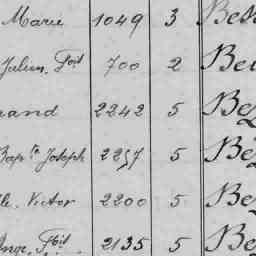 Marie 1049 3 Bes
Julien, 700 2 Be
rand 2242 5 Be
Bap.te Joseph 2257 5 Be
Victor 2200 5 Be
2135 5 Be